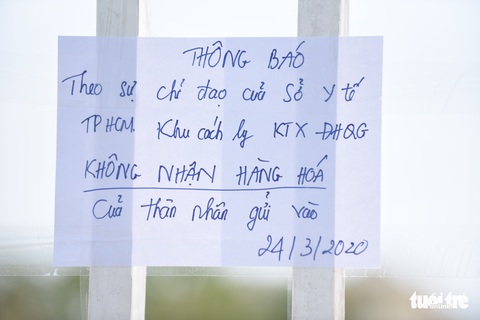 THÔNG BÁO
Theo sự chỉ đạo của Sở Y tế
TP HCM. Khu cách ly KTX ĐHQG
KHÔNG NHẬN HÀNG HOÁ
Của thân nhân gửi vào
24/3/2020
tuổi trẻ